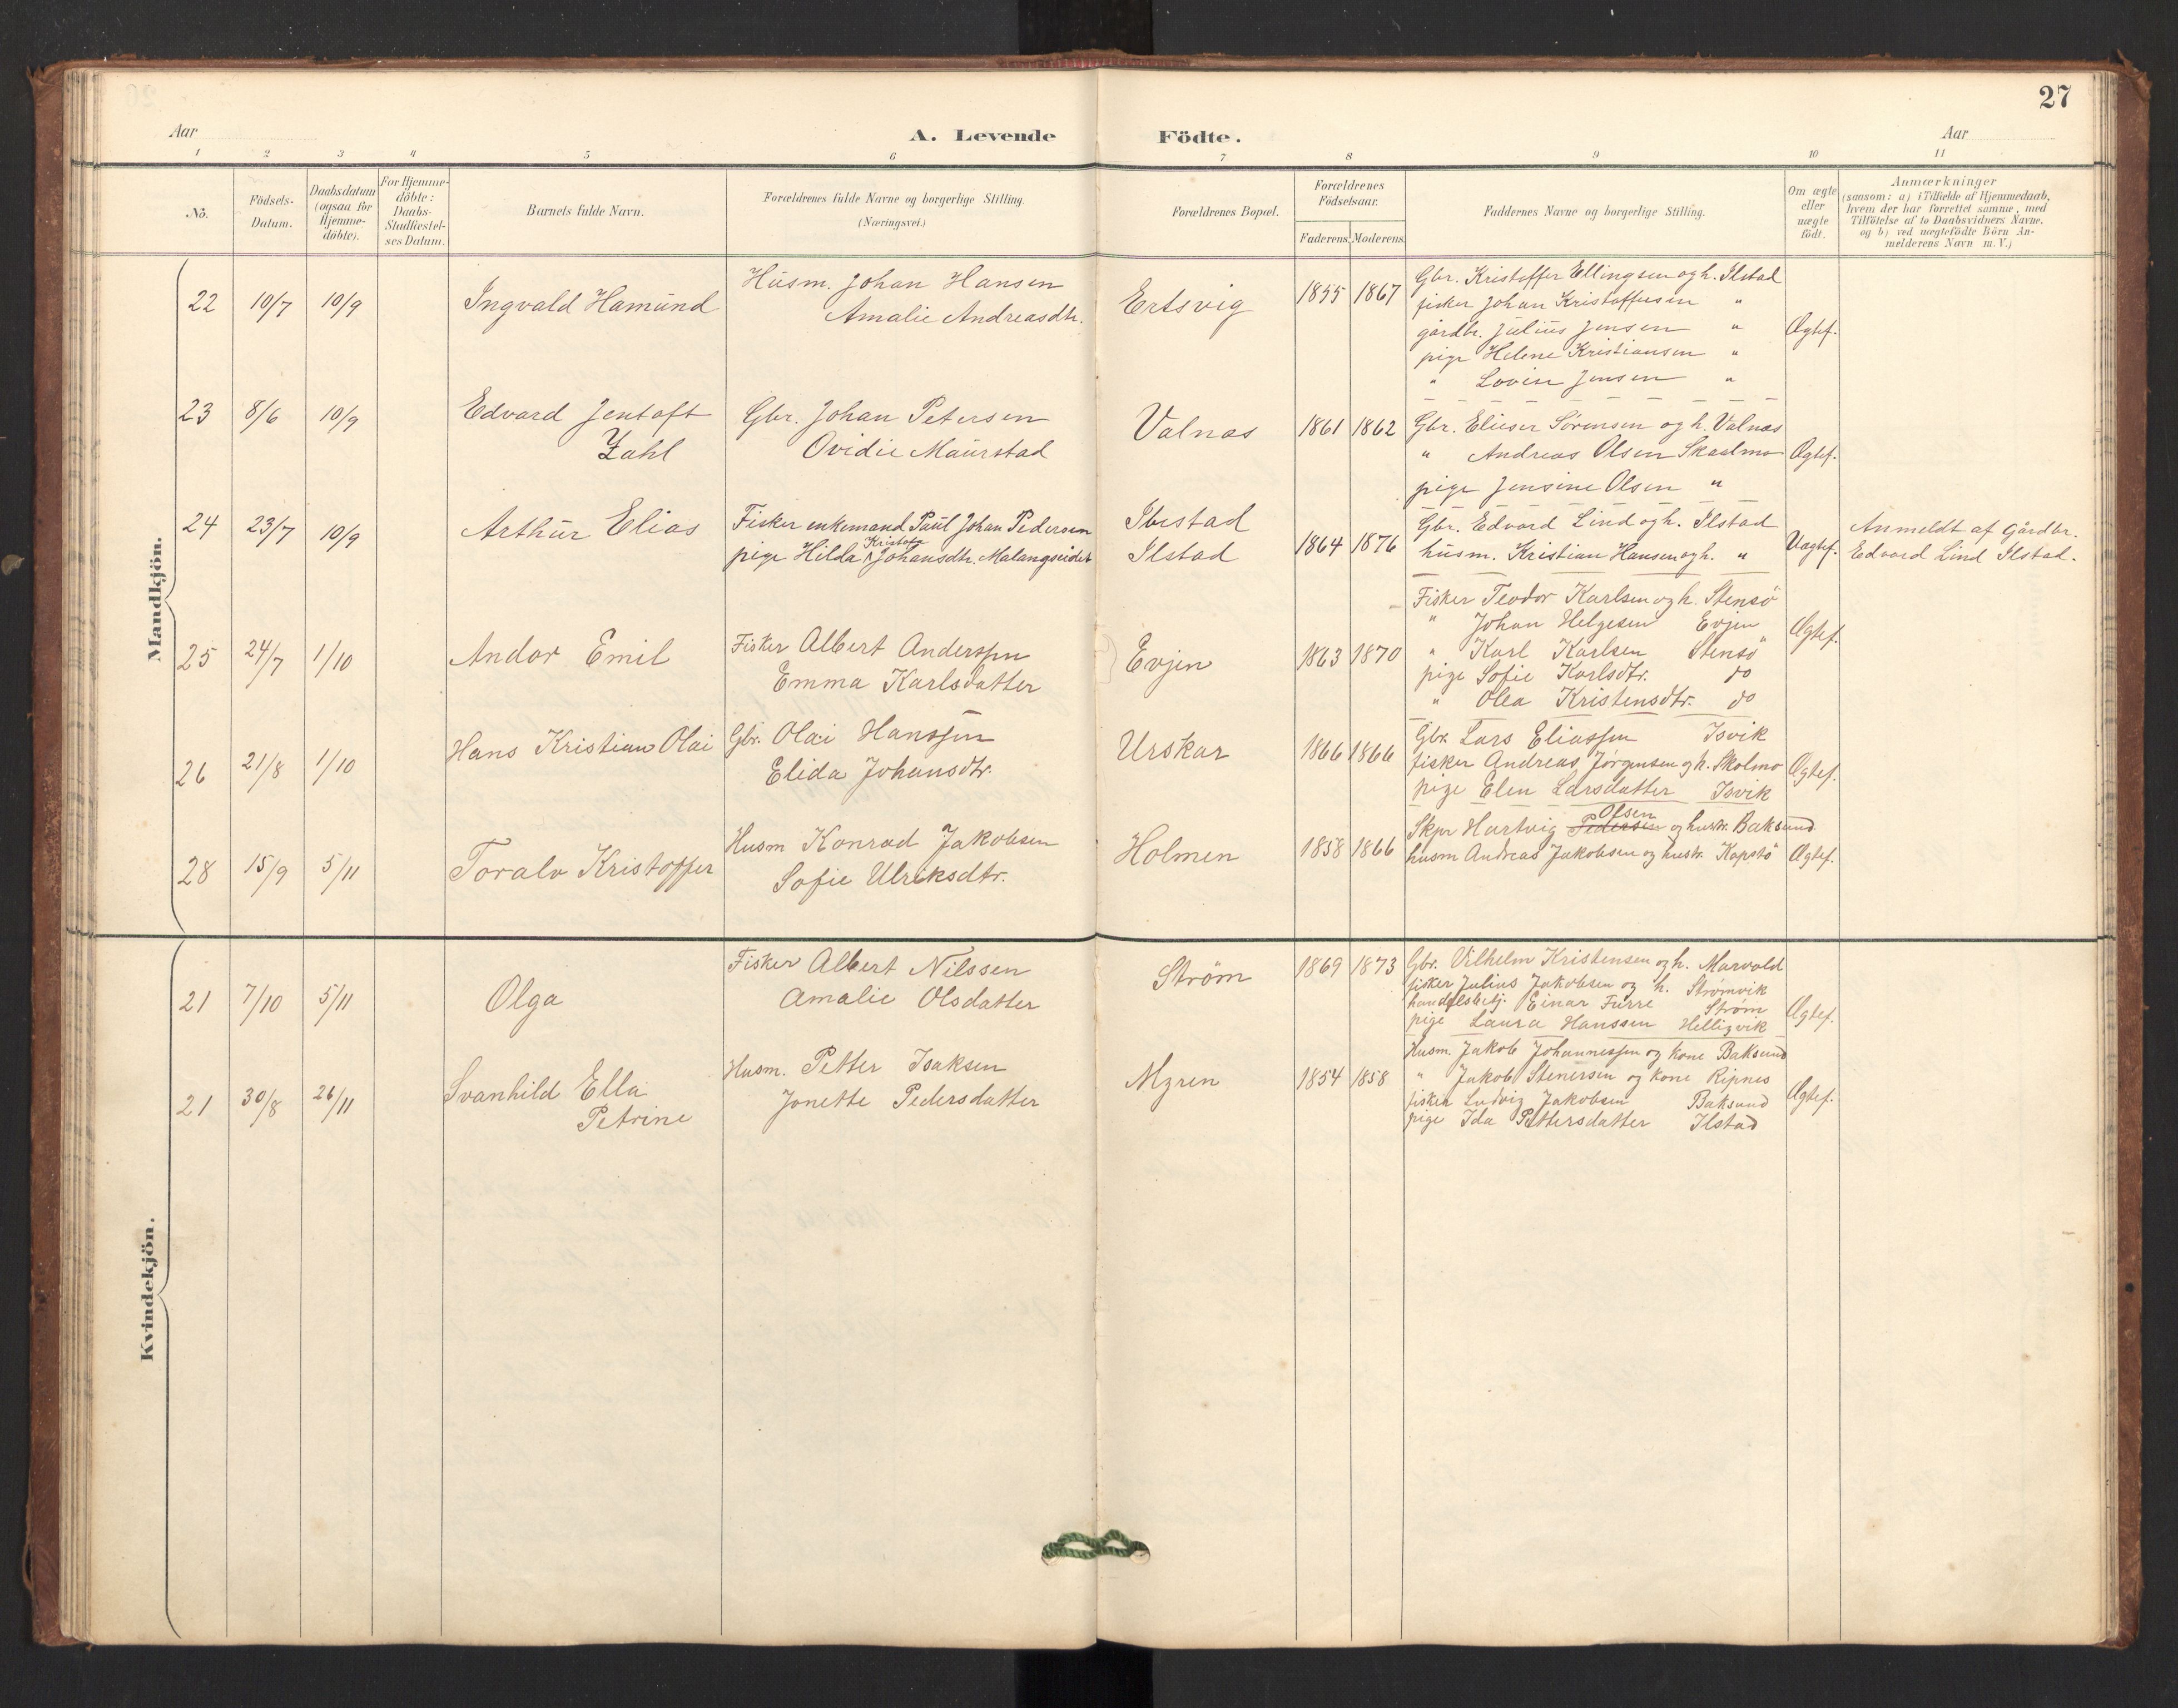 27
Aar
A. Levende Födte.
Aar
1 2 3 4 5 6 7 8 9 10 11
No.
Födsels-Datum.
Daabsdatum (ogsaa for Hjemme-döbte).
For Hjemme-döbte: Daabs-Stadfæstel-ses Datum.
Barnets fulde Navn.
Forældrenes fulde Navne og borgerlige Stilling. (Næringsvei.)
Forældrenes Bopæl.
Forældrenes Födselsaar.
Faderens. Moderens.
Faddernes Navne og borgerlige Stilling.
Om ægte eller uægte födt.
Anmærkninger
(saasom: a) i Tilfælde af Hjemmedaab,
hvem der har forrettet samme, med
Tilföielse af to Daabsvidners Navne,
og b) ved uægtefödte Börn An-
melderens Navn m. V.)
Mandkjön.
22 10/7 10/9 Ingvald Hamund
Husm. Johan Hansen
Amalie Andreasdtr.
Ertsvig 1855 1867
Gbr. Kristoffer Ellingsen og h. Ilstad
fisker Johan Kristoffersen "
gårdbr. Julius Jensen "
pige Helene Kristiansen "
" Lovise Jensen "
Ægtef.
23 8/6 10/9 Edvard Jentoft
Zahl
Gbr. Johan Petersen
Ovidie Maurstad
Valnas 1861 1862
Gbr. Elieser Sörensen og h. Valnas
" Andreas Olsen Skaalmo
pige Jensine Olsen "
Ægtef.
24 23/7 10/9 Arthur Elias
Fisker enkemand Paul Johan Pedersen
Kristofa
pige Hilda Johansdtr. Malangseidet
Ibestad
Ilstad
1864 1876
Gbr. Edvard Lind og h. Ilstad
husm. Kristian Hansen og h. "
Uægtef.
Anmeldt af Gårdbr.
Edvard Lind Ilstad.
25 24/7 1/10 Andor Emil
Fisker Albert Anderssen
Emma Karlsdatter
Evjen 1863 1870
Fisker Teodor Karlsen og h. Stensö
" Johan Helgesen Evjen
" Karl Karlsen Stensö
pige Sofie Karlsdtr. do
" Olea Kristensdtr. do
Ægtef.
26 21/8 1/10 Hans Kristian Olai
Gbr. Olai Hanssen
Elida Johansdtr.
Urskar 1866 1866
Gbr. Lars Eliassen Isvik
fisker Andreas Jörgensen og h. Skolmo
pige Elen Larsdatter Isvik
Ægtef.
28 15/9 5/11 Toralv Kristoffer
Husm Konrad Jakobsen
Sofie Ulriksdtr.
Holmen 1858 1866
Olsen
Skpr Hartvig Pedersen og hustr. Baksund
husm Andreas Jakobsen og hustr. Kapstö
Ægtef.
Kvindekjön.
21 7/10 5/11 Olga
Fisker Albert Nilssen
Amalie Olsdatter
Ström 1869 1873
Gbr. Vilhelm Kristensen og h. Marvold
fisker Julius Jakobsen og h. Strömvik
handelsbetj. Einar Furre Ström
pige Laura Hanssen Helligvik
Ægtef.
21 30/8 26/11 Svanhild Ella
Petrine
Husm. Petter Isaksen
Jonette Pedersdatter
Myren 1854 1858
Husm. Jakob Johannessen og kone Baksund
" Jakob Stenersen og kone Ripnes
fisker Ludvig Jakobsen Baksund
pige Ida Pettersdatter Ilstad
Ægtef.